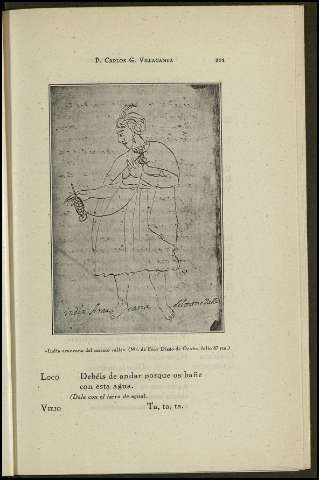 D. CARLOS G. VILLACAMPA 211
India Arau cana del mismo Valle
«India araucana del mismo valle» (Ms. de Fray Diego de Ocaña, folio 87 vto.)
LOCO Debéis de andar porque os bañe
con esta agua.
(Dale con el jarro de agua).
VIEJO Ta, ta, ta.